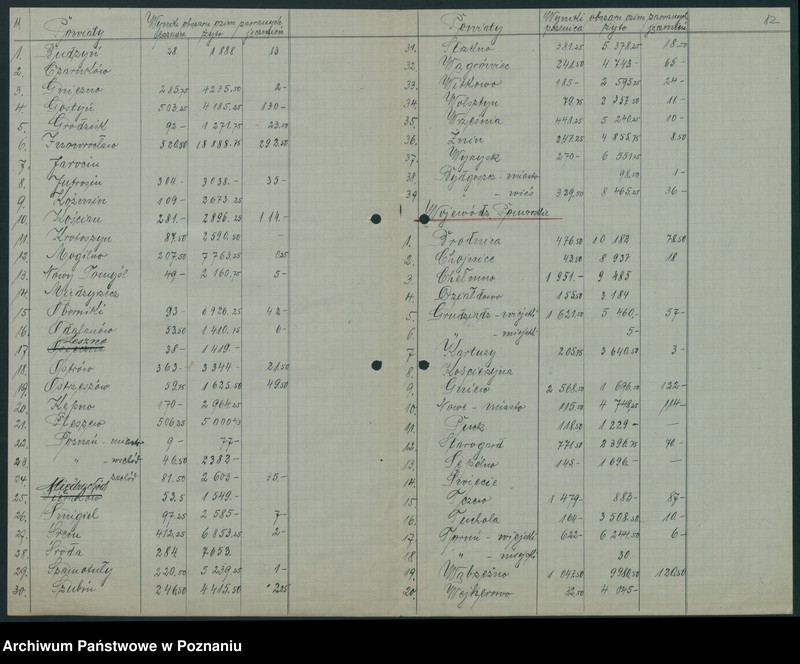 11
Powiaty Wyniki obszaru ozim. zasianych
pszenica żyto jęczmień
1. Budzyń 28 1 888 13
2. Czarnków
3. Gniezno 215.75 4235.50 2-
4. Gostyń 503.25 4 185.25 130-
5. Grodzisk 92- 1 271.75 23.50
6. Inowrocław 320.50 18 888.75 292.50
7. Jarocin
8. Jutrosin 304- 3038.- 35-
9. Koźmin 109- 2673.25
10. Kościan 281.- 2896.25 114-
11. Krotoszyn 87.50 2590.50 -
12. Mogilno 207.50 7763.25 0.25
13. Nowy Tomyśl 49- 2 160.75 5-
14. Międzyrzecz
15 Oborniki 93- 6926.25 42-
16. Odolanów 33.50 1 410.75 6-
17 Leszno 38- 1419.-
18. Ostrów 363.- 3 344- 21.50
19. Ostrzeszów 59.75 1 625.50 49.50
20. Kępno 170- 2 964.25
21. Pleszew 506.25 5 000
22. Poznań - miasto 9- 77-
23. " - wschód 46.50 2382-
24. zachód 81.50 2 603- 35.-
25. Międzychód 53.5 1 549-
26. Śmigiel 97.25 2 585- 7-
27. Śrem 412.25 6 853.25 2-
28. Środa 284 7 053
29. Szamotuły 220.50 5 239.25 1-
30. Szubin 246.50 4 415.50 2.25
82
Powiaty Wyniki obszaru ozim. zasianych
pszenica żyto jęczmień
31. 381.25 5 378.25 18.50
32. Wągrówiec 241.50 4 748- 65-
33. Witkowo 185- 2 595.25 24-
34. Wolsztyn 79.75 2 357.50 11-
35. Września 441.25 5 240.25 10-
36. Żnin 247.25 4 855.75 8.50
37. Wyrzysk 270- 6 551.25
38. Bydgoszcz - miasto 98.50 1-
39 " - wieś 329.50 8 465.25 36-
Wojewódz. Pomorskie
1. Brodnica 476.50 10 182 78.50
2. Chojnice 43.50 8 937 18
3. Chełmno 1 951.- 9 485
4. Działdowo 155.50 3 184
5. Grudziądz - wiejski 1 621.50 5 460.- 57-
6. " - miejski 5-
7. Kartuzy 205.75 3 640.50 3-
8. Kościerzyna
9. Gniew 2 568.50 1 696.50 122-
10. Nowe - miasto 115.50 4 748.25 114-
11. Puck 118.50 1 229-
12. Starogard 771.50 2 396.75 70-
13. Sępólno 145- 1 696-
14. Świecie
15. Tczew 1 479- 883- 87-
16. Tuchola 164- 3 508.50 10.-
17. Toruń - wiejski 622- 6 244.50 6-
18 " - miejski 30
19. Wąbrzeźno 1 047.50 9980.50 120.50
20. Wejherowo 32.50 4 045-
Archiwum Państwowe w Poznaniu